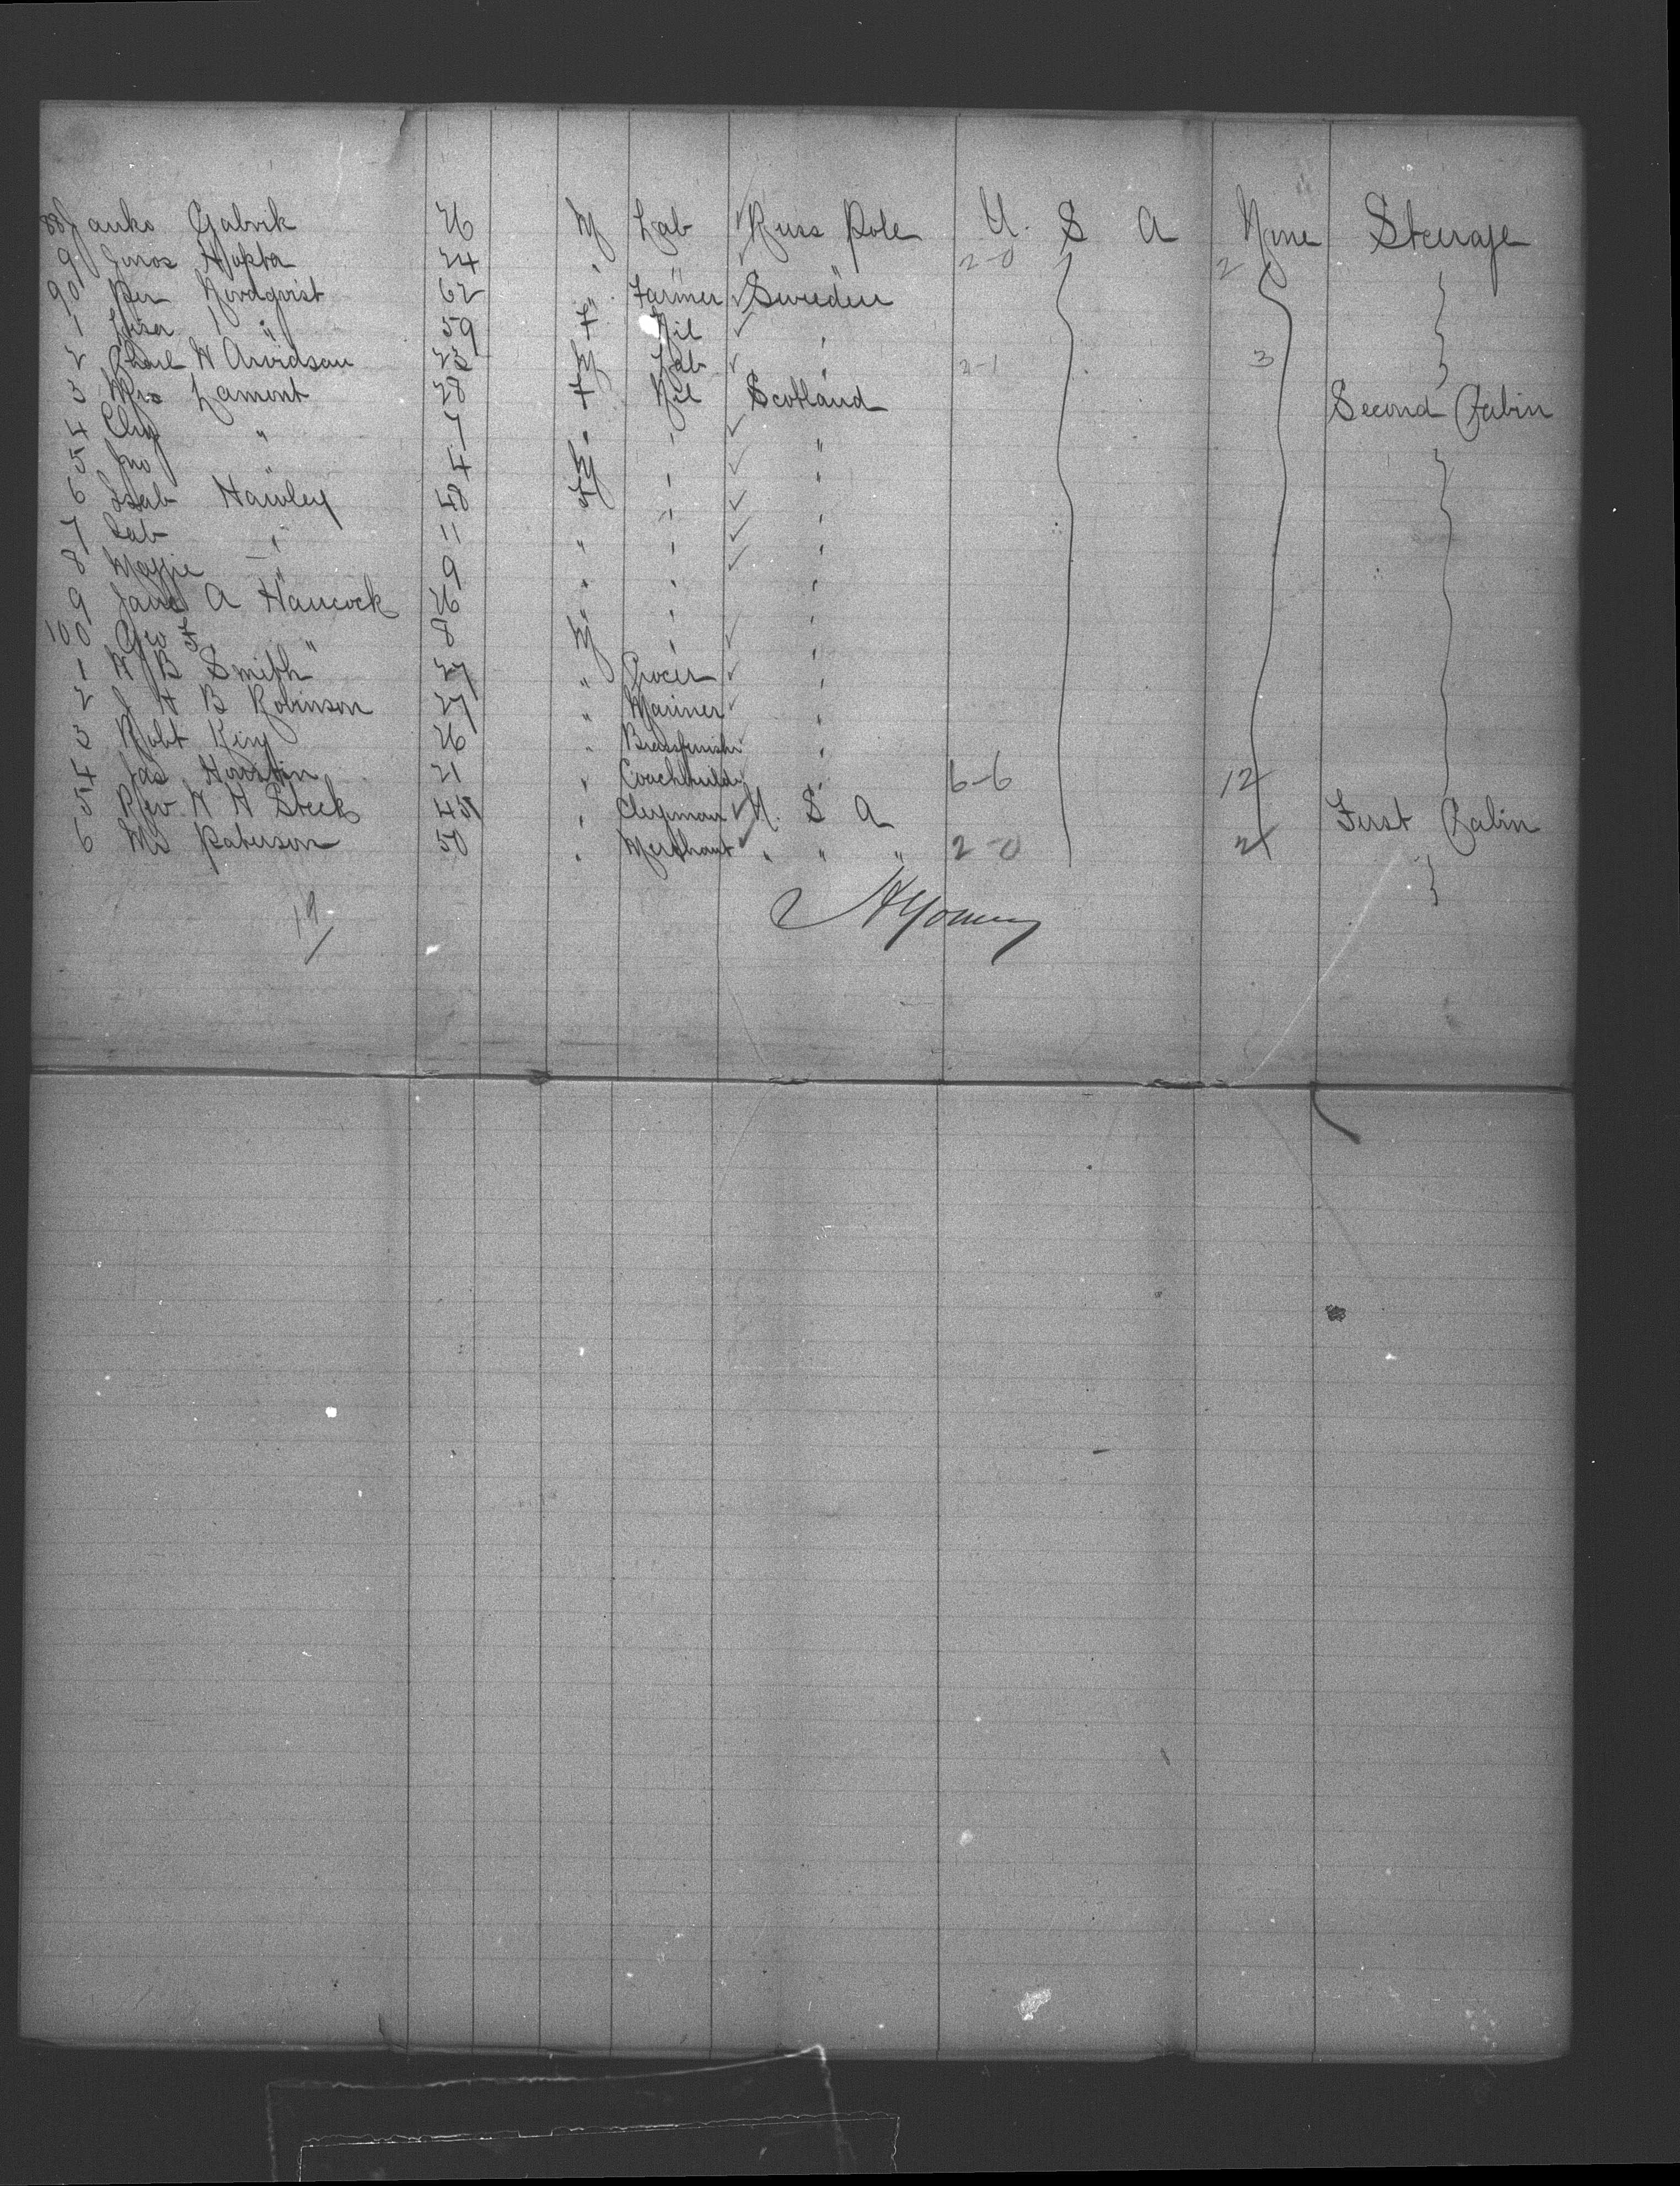 88 Janko Gabrik 26 M Lab Russ Pole U. S A None Steerage
9 Hopta 24 " " " 2-0 2
90 Per Nordqvist 62 " Farmer Sweden
1 Lisa " 59 F Nil "
2 Charl W Arvidson 23 M Lab " 2-1 3
3 Mrs Lamont 28 F Nil Scotland Second Cabin
4 " 7 " " "
5 Jno " 4 M " "
6 Isab Hawley 48 F " "
7 Isab " 11 " " "
8 Maggie " 9 " " "
9 Jane A Hancock 26 " " "
100 Geo F " 8 M " "
1 W B Smith 27 " Grocer "
2 J H B Robinson 27 " Mariner "
3 Robt King 26 " Brassfinishr "
4 Jas Houstin 21 " Coachbuildr " 6-6 12
5 Rev W H Steck 45 " Clergman U. S A First Cabin
6 Mr Paterson 50 " Merchant " " " 2-0 2
19